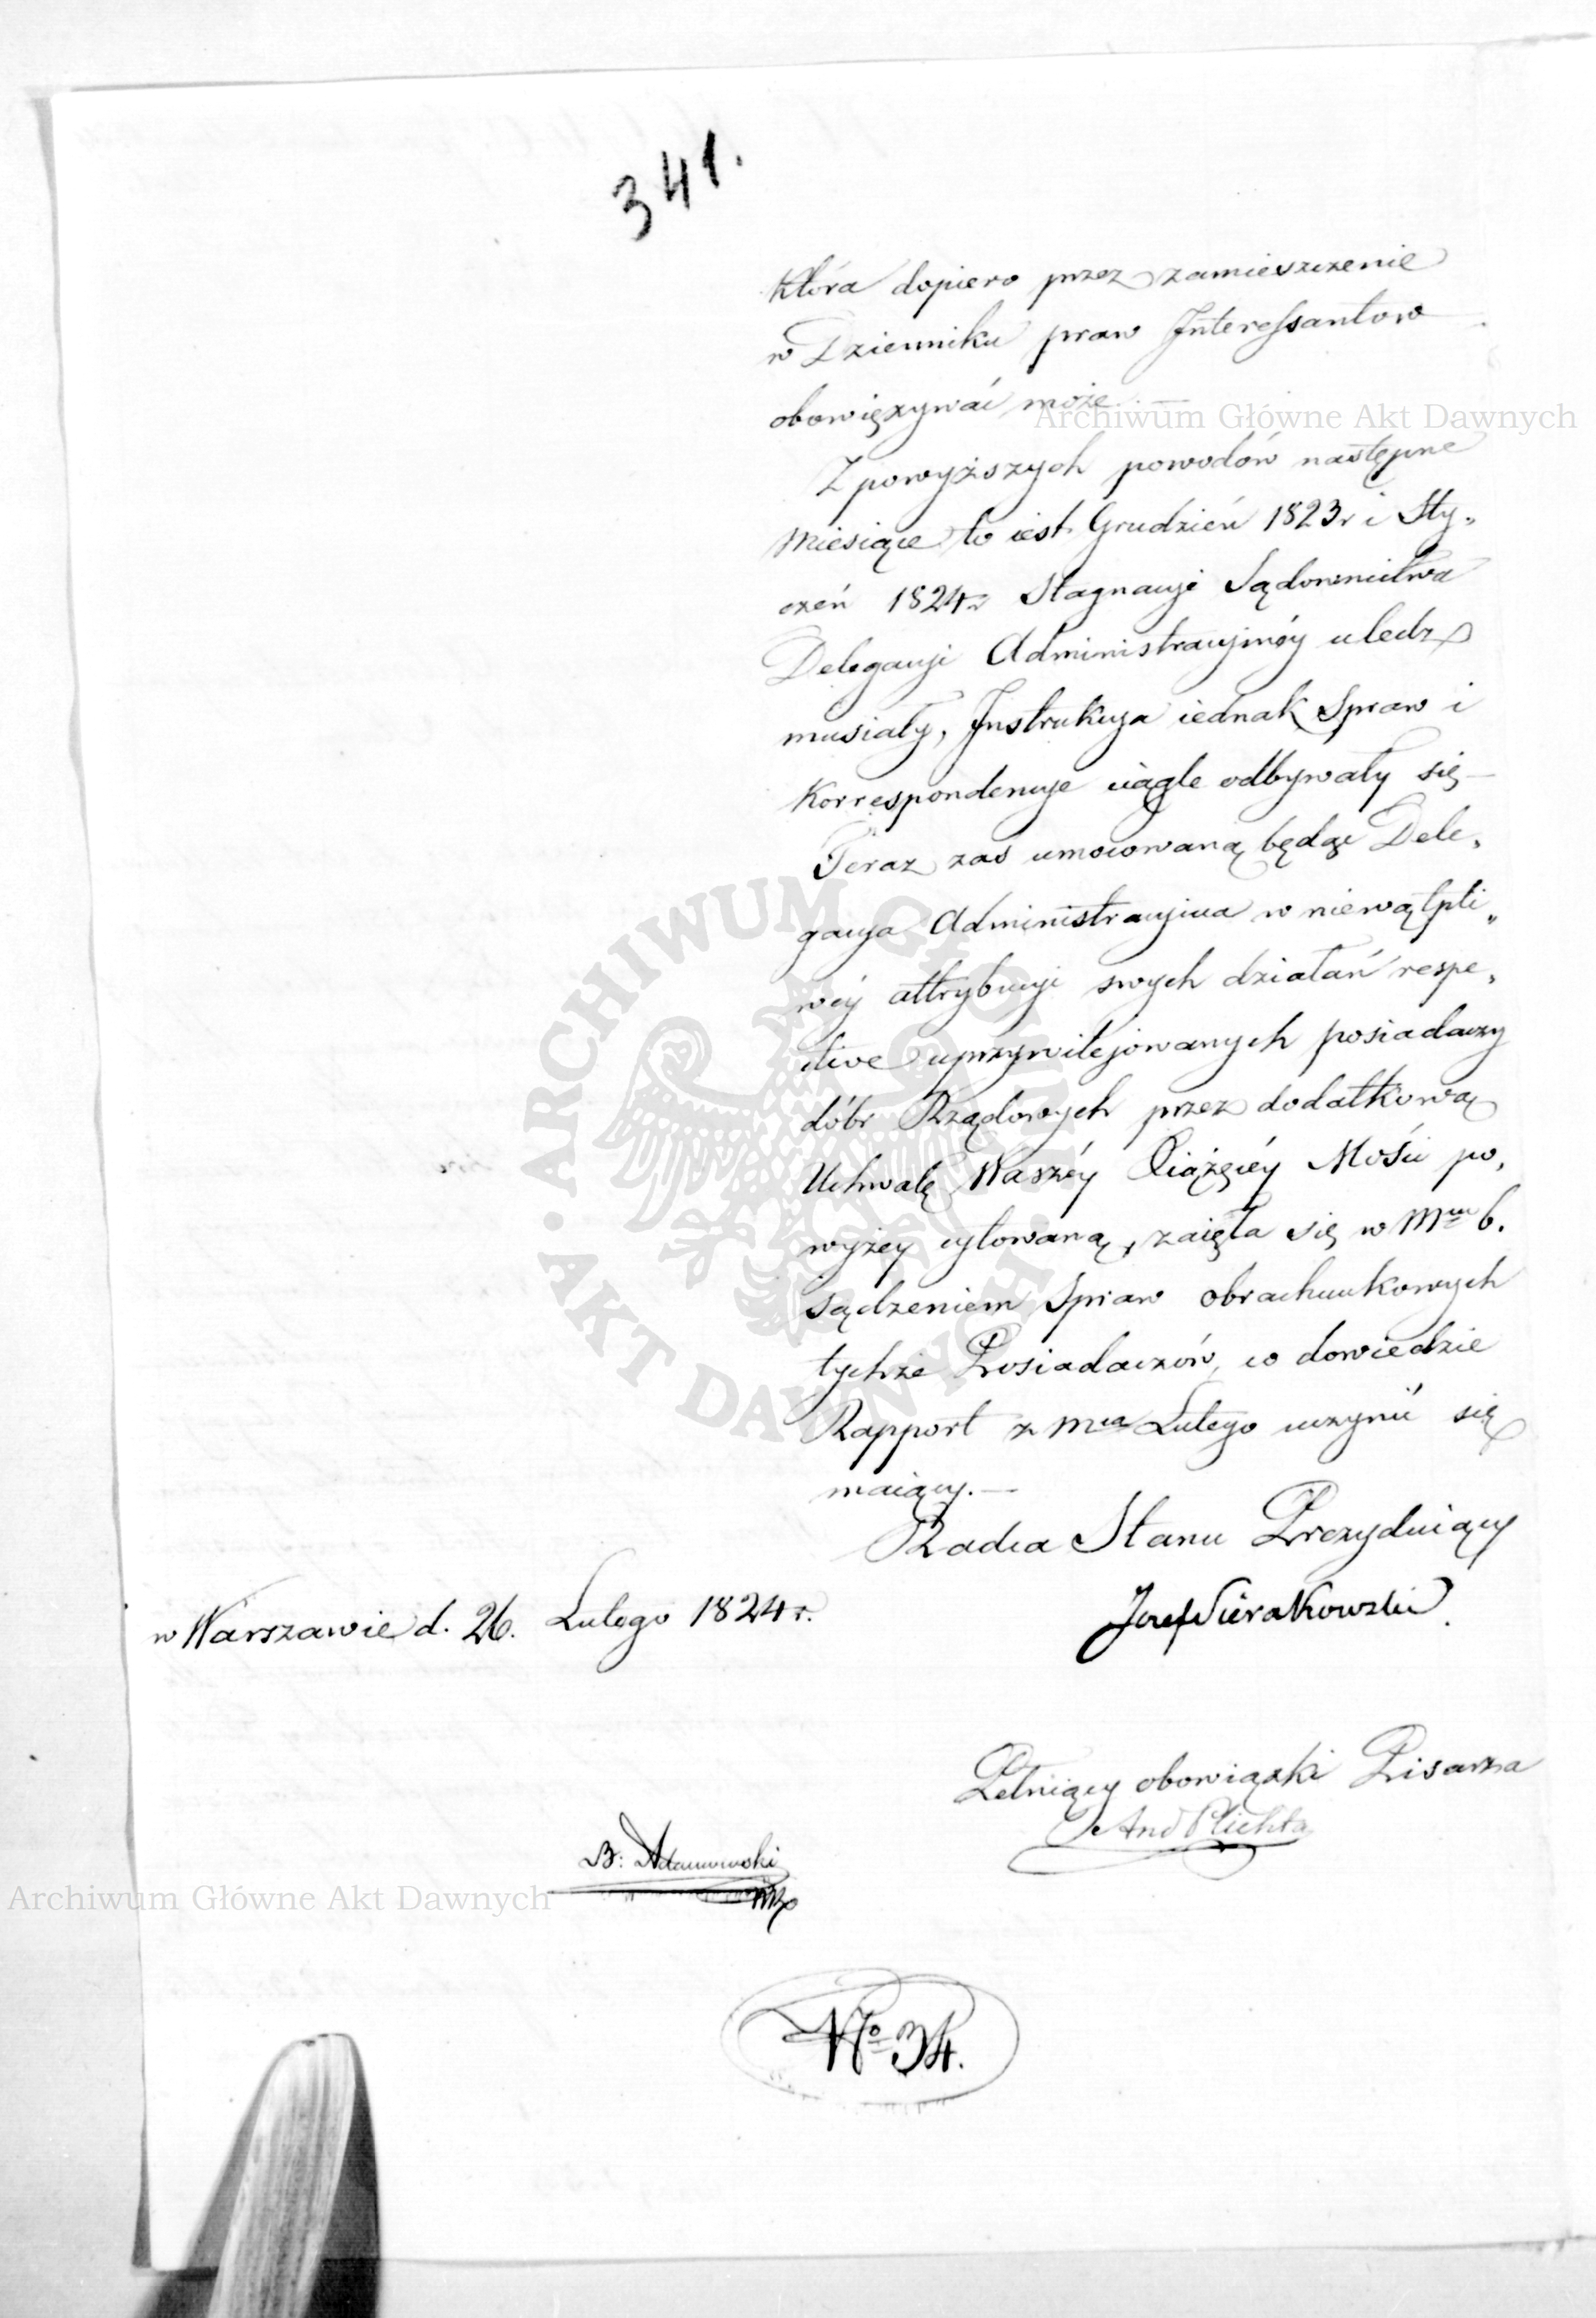 341.
która dopiero przez zamieszczenie
w Dzienniku praw Interessantow
obowięzywać może. —
Z powyższych powodów następne
Miesiące to iest Grudzień 1823r i Sty„
czeń 1824r Stagnacyi Sądownictwa
Delegacyi Administracyinéy uledz
musiały, Instrukcya iednak Spraw i
Korrespondencye ciągle odbywały się —
Teraz zaś umocowaną będąc Dele„
gacya Administracyina w niewątpli„
wéy attrybucyi swych działań respe„
ctive uprzywilejowanych posiadaczy
dóbr Rządowych przez dodatkową
Uchwałę Waszéy Xiążęcéy Mości po„
wyżey cytowaną, zaięła się w Mcu b.
sądzeniem Spraw obrachunkowych
tychże Posiadaczów, co dowiedzie
Rapport z Mca Lutego uczynić się
maiący. —
Radca Stanu Prezyduiący
w Warszawie d. 26. Lutego 1824 r.
Józef Sierakowski.
Pełniący obowiązki Pisarza
And Plichta
B: Adamowski
mp
No 34.
Archiwum Główne Akt Dawnych
ARCHIWUM GŁÓWNE
AKT DAWNYCH
Archiwum Główne Akt Dawnych